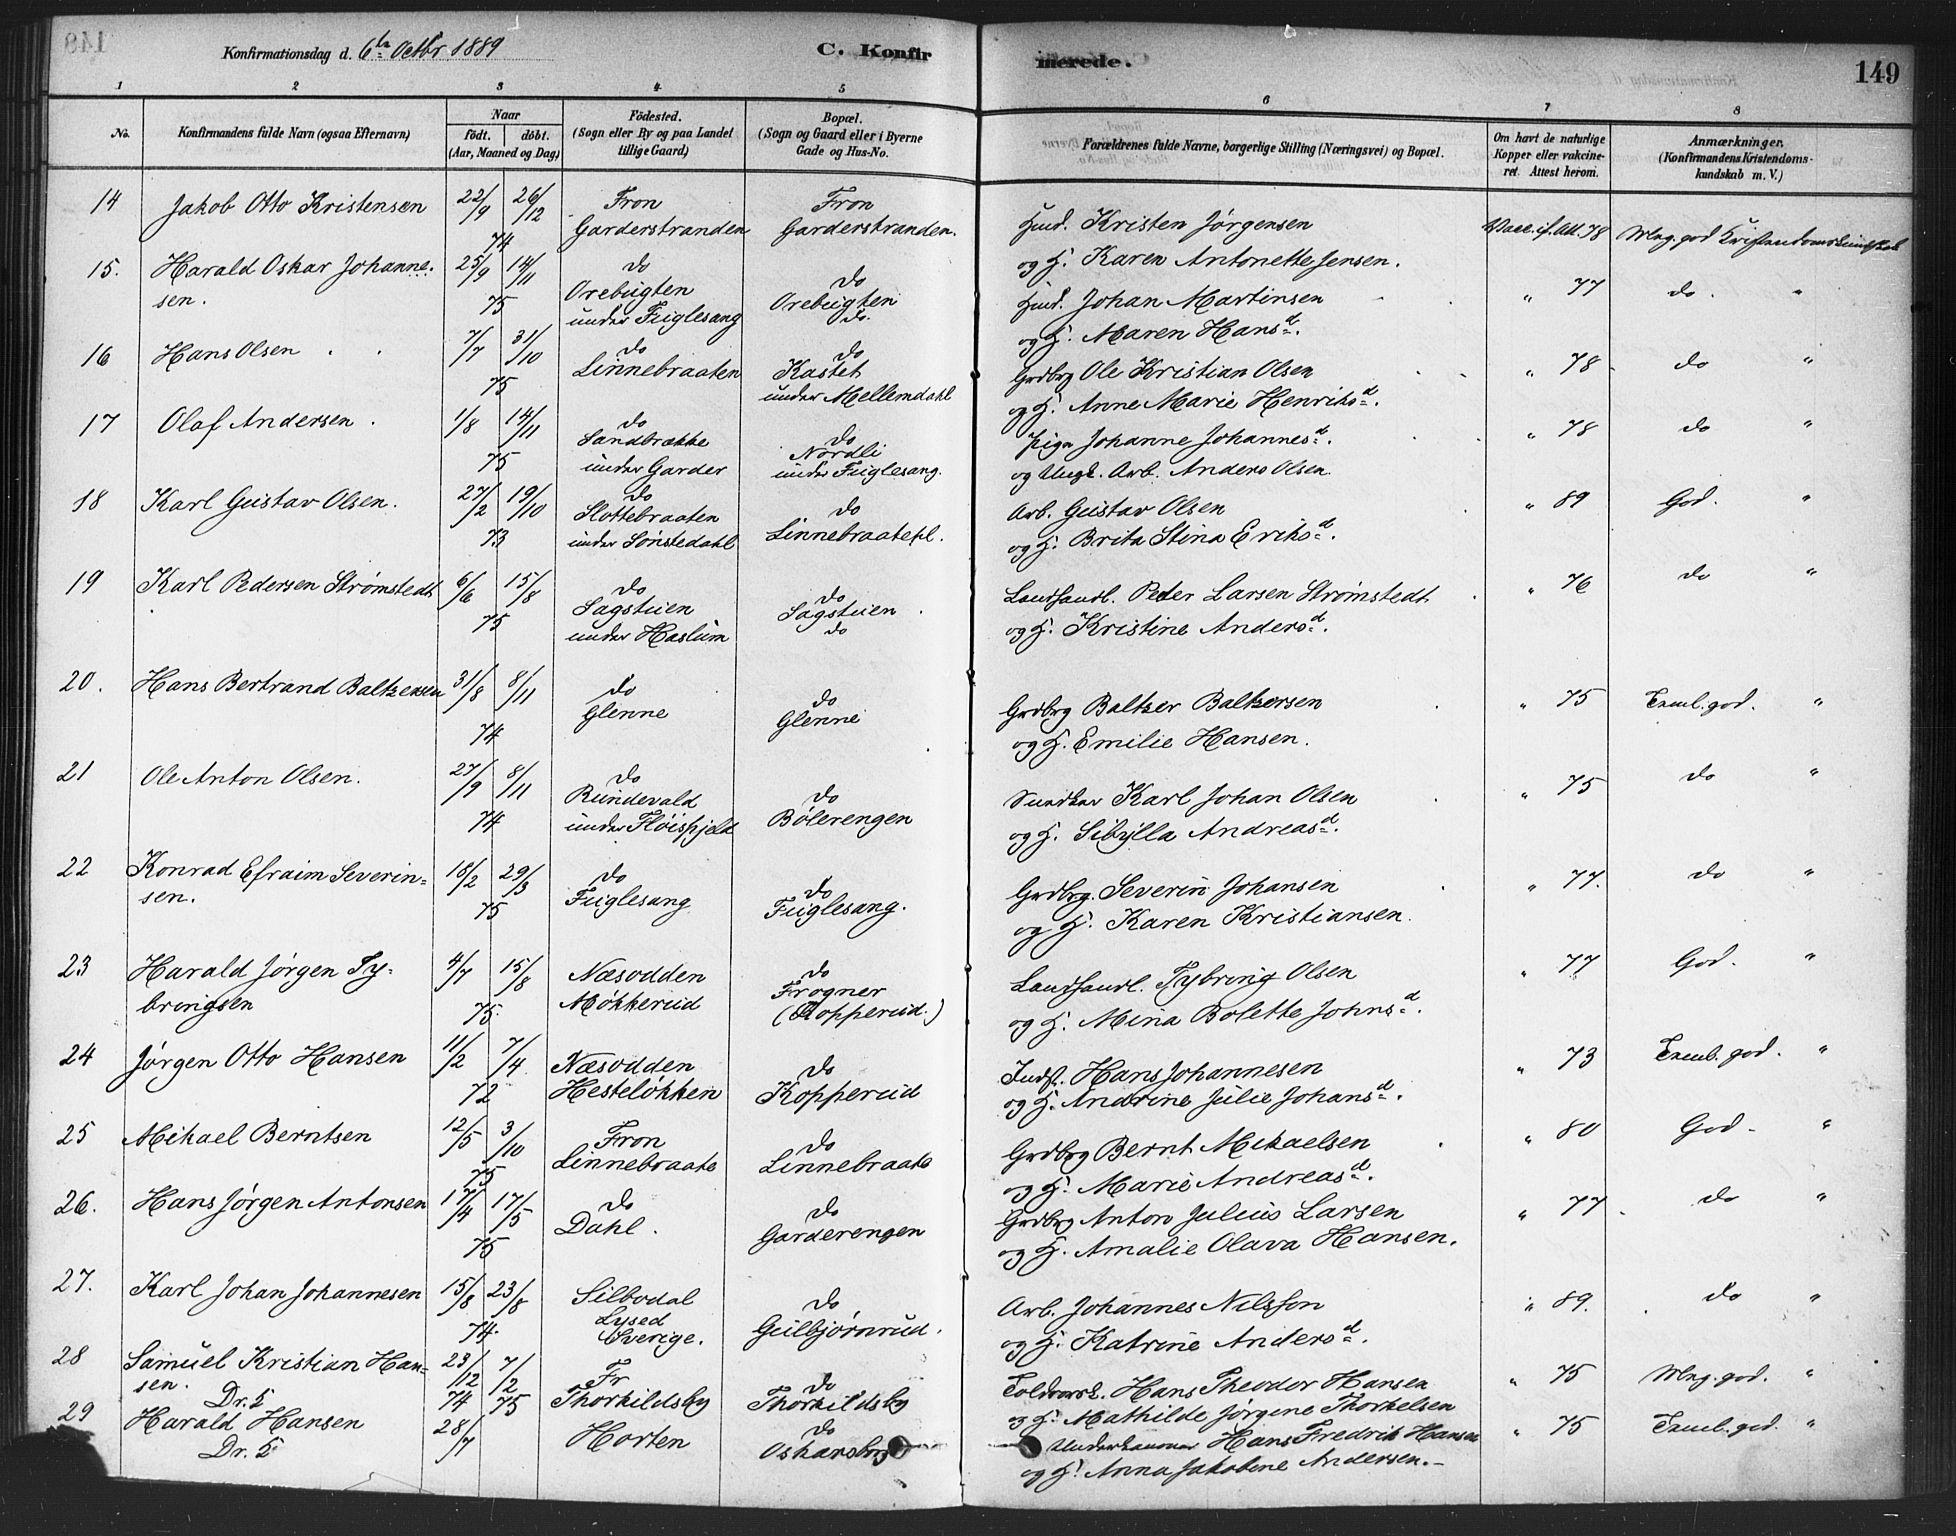 Konfirmationsdag d. 6te Octbr. 1889
C. Konfirmerede.
149
1 2 3 4 5 6 7 8
No.
Konfirmandens fulde Navn (ogsaa Efternavn)
Naar
födt. döbt.
(Aar, Maaned og Dag)
Födested.
(Sogn eller By og paa Landet
tillige Gaard)
Bopæl.
(Sogn og Gaard eller i Byerne
Gade og Hus-No.
Forældrenes fulde Navne, borgerlige Stilling (Næringsvei) og Bopæl.
Om havt de naturlige
Kopper eller vakcine-
ret. Attest herom.
Anmærkninger.
(Konfirmandens Kristendoms-
kundskab m. V.)
14 Jakob Otto Kristensen 22/9 26/12 74 Fron Garderstranden Fron Garderstranden.
Kristen Jørgensen
og H. Karen Antonette Jensen.
Vacc. if. Att. 78 Mg. god Kristendomskundskab
15. Harald Oskar Johanne-
sen. 25/9 14/11 75 do Orebugten under Fuglesang do Orebugten do.
Johan Martinsen
og H. Maren Hansd.
" 77 do. "
16 Hans Olsen 7/7 31/10 75 do Linnebraaten do Kastet under Mellemdahl
Grdbrg Ole Kristian Olsen
og H. Anne Marie Henriksd.
" 78 do "
17 Olaf Andersen. 1/8 14/11 75 do Sandbrække under Garder do Nordli under Fuglesang.
Pige Johanne Johannesd.
og Ungk. Arb. Anders Olsen
" 78 do "
18 Karl Gustav Olsen. 27/2 19/10 73 do Slottebraaten under Sønstedahl do Linnebraatepl.
Arb. Gustav Olsen
og H. Brita Stina Eriksd.
" 89 God. "
19 Karl Pedersen Strømstedt 6/6 15/8 75 do Sagstuen under Haslum do Sagstuen do
Landhandl. Peder Larsen Strømstedt
og H. Kristine Andersd.
" 76 do "
20. Hans Bertrand Baltzersen 31/8 8/11 74 do Glenne do Glenne
Grdbrg Baltzer Baltzersen
og H. Emilie Hansen.
" 75 Teml. god. "
21 Ole Anton Olsen. 27/9 8/11 74 do Rundevald under Fløispjeld do Bølerengen
Snedker Karl Johan Olsen
og H. Sibylla Andreasd.
" 75 do "
22 Konrad Efraim Severin-
sen. 18/2 29/3 75 do Fuglesang do Fuglesang.
Grdbrg. Severin Johansen
og H. Karen Kristiansen.
" 77. do "
23 Harald Jørgen Ty-
bringsen 4/7 15/8 75. Næsodden Møkkerud do Frogner (Kopperud.)
Landhandl. Tybring Olsen
og H. Mina Bolette Johnsd.
" 77 God. "
24 Jørgen Otto Hansen 11/2 7/4 72 Næsodden Hesteløkken do Kopperud
Indst. Hans Johannesen
og H. Andrine Julie Johansd.
" 73 Teml. god. "
25 Mikael Berntsen 12/5 3/10 75 Fron Linnebraate do Linnebraate
Grdbrg Bernt Mikaelsen
og H. Marie Andreasd.
" 80 God - "
26. Hans Jørgen Antonsen 17/4 17/5 75 do Dahl. do Garderengen
Grdbrg Anton Julius Larsen
og H. Amalie Olava Hansen.
" 77 do "
27. Karl Johan Johannesen 15/8 23/8 74. Silbodal Lysed Sverige. do Gulbjørnrud.
Arb. Johannes Nilsson
og H. Katrine Andersd.
" 89. do "
28 Samuel Kristian Han-
sen. Dr. 5 23/12 74 7/2 75 Fr Thorkildsby do Thorkildsby
Hans Theodor Hansen
og H. Mathilde Jørgene Thorkelsen
" 75 Mg. god. "
29 Harald Hansen
Dr. 5 28/7 Horten do Oskarsborg
Underkanoner Hans Fredrik Hansen
og H. Anna Jakobine Andersen. -
" 75 Teml. god. "